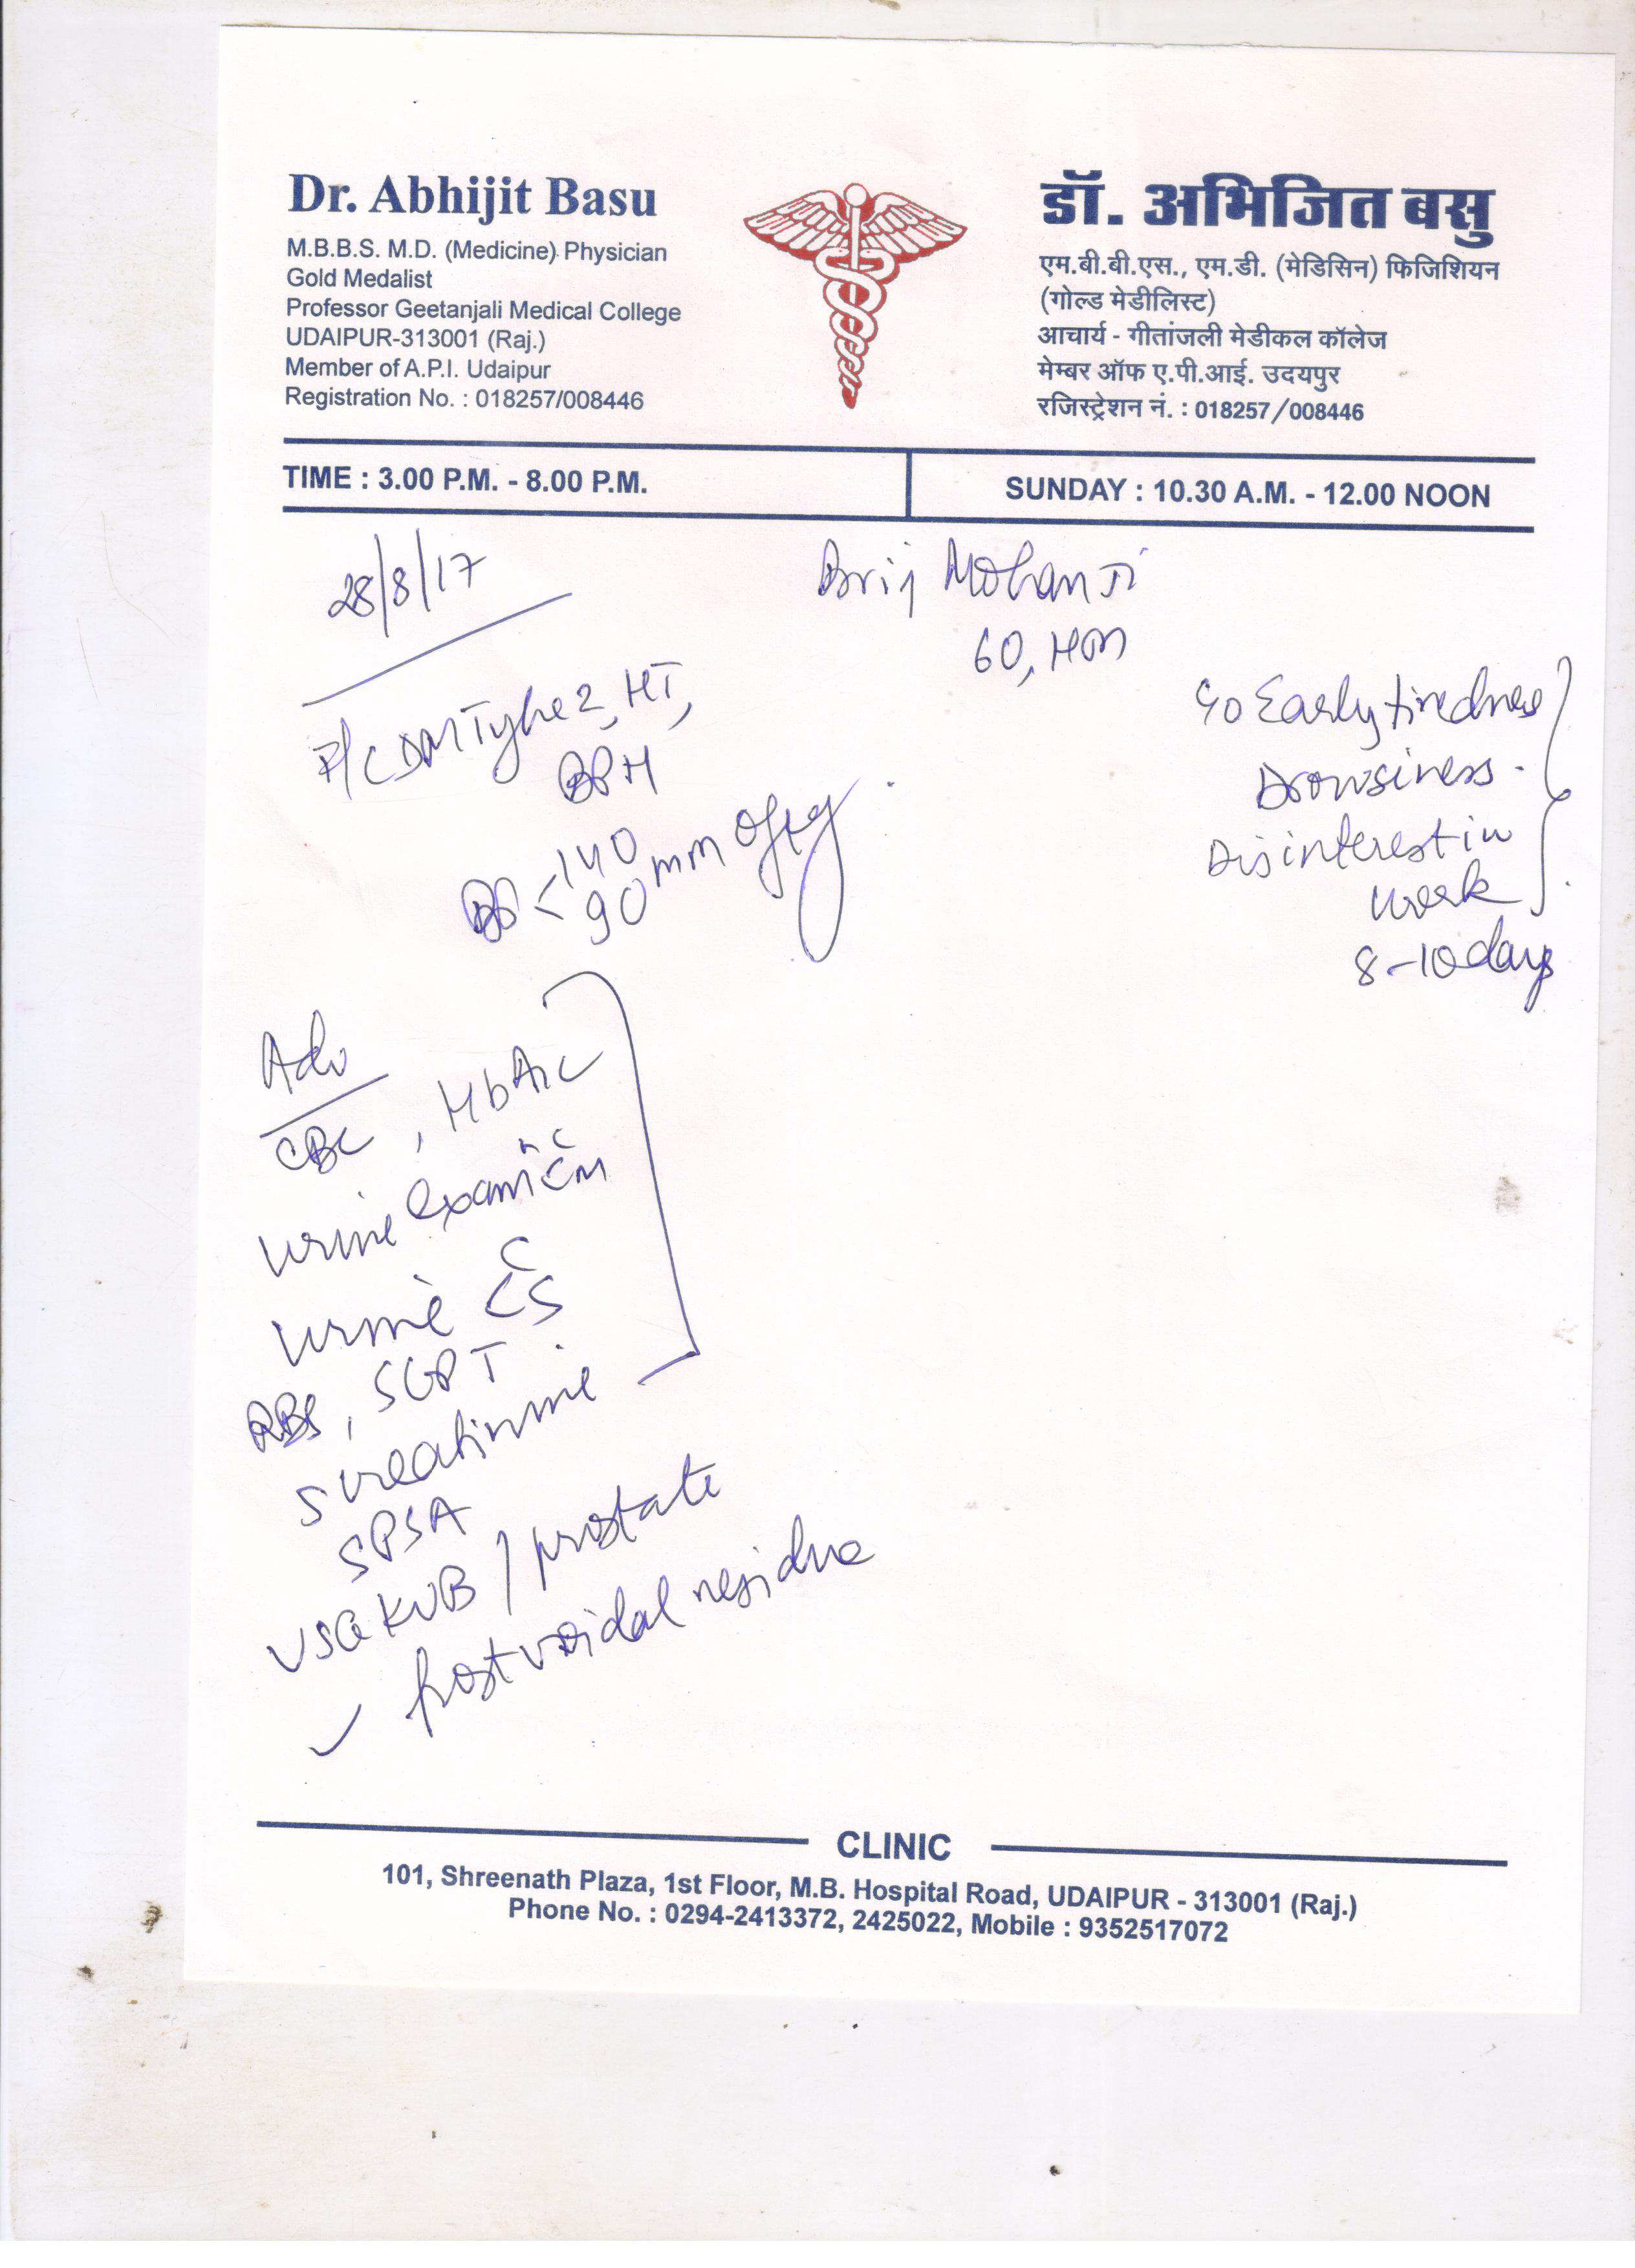 Dr. Abhijit Basu
M.B.B.S. M.D. (Medicine) Physician
Gold Medalist
Professor Geetanjali Medical College
UDAIPUR-313001 (Raj.)
Member of A.P.I. Udaipur
Registration No. : 018257/008446
डॉ. अभिजित बसु
एम.बी.बी.एस., एम.डी. (मेडिसिन) फिजिशियन
(गोल्ड मेडीलिस्ट)
आचार्य - गीतांजली मेडीकल कॉलेज
मेम्बर ऑफ ए.पी.आई. उदयपुर
रजिस्ट्रेशन नं. : 018257/008446
TIME : 3.00 P.M. - 8.00 P.M.
SUNDAY : 10.30 A.M. - 12.00 NOON
28/8/17
Brij Mohan Ji
60,
c/o Early tiredness
Drowsiness.
Disinterest in
work
8-10 days
DM Type 2, HT,
BPH
BP < 140
90 mm of Hg
Adv
CBC, HbA1c
Urine
Urine CS
RBS, SGPT
S creatinine
SPSA
USG KUB / prostate
post voidal residue
CLINIC
101, Shreenath Plaza, 1st Floor, M.B. Hospital Road, UDAIPUR - 313001 (Raj.)
Phone No. : 0294-2413372, 2425022, Mobile : 9352517072